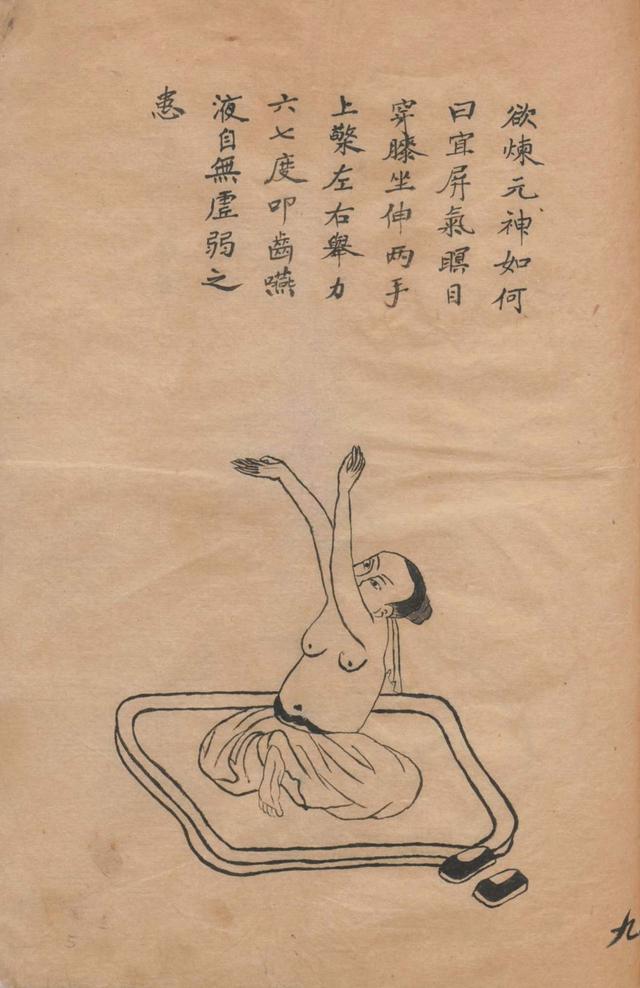 欲煉元神如何
曰宜屏氣瞑目
穿膝坐伸两手
上檠左右舉力
六七度叩齒嚥
液自無虛弱之
患
九
5